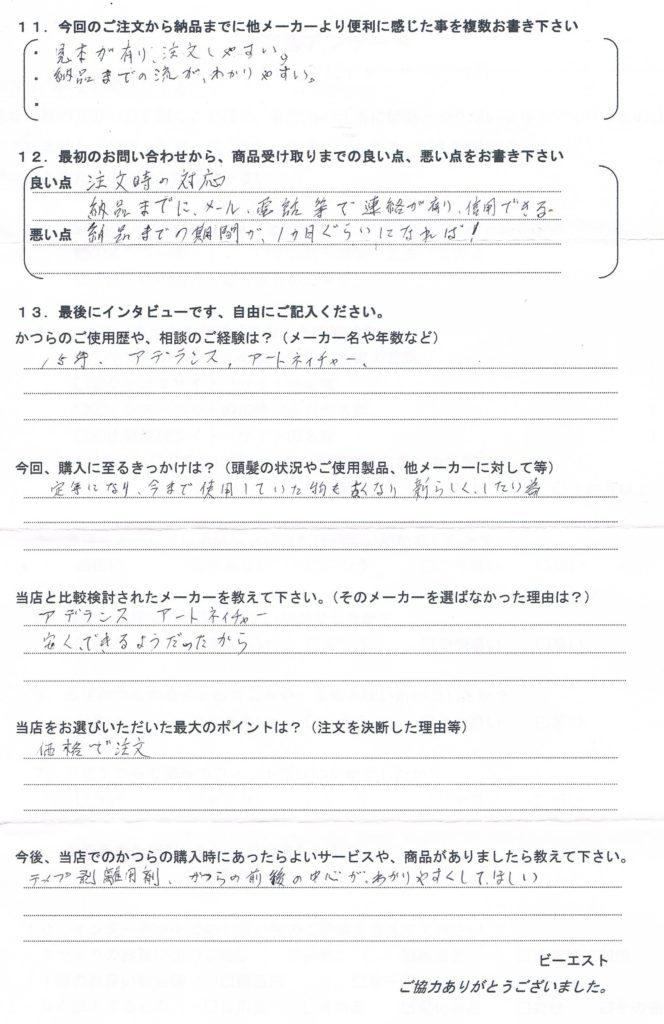 １１．今回のご注文から納品までに他メーカーより便利に感じた事を複数お書き下さい
・ 見本が有り、注文しやすい。
・ 納品までの流が、わかりやすい。
・
１２．最初のお問い合わせから、商品受け取りまでの良い点、悪い点をお書き下さい
良い点 注文時の対応
納品までに、メール、電話等で連絡が有り、信用できる。
悪い点 納品までの期間が、１カ月ぐらいになれば！
１３．最後にインタビューです、自由にご記入ください。
かつらのご使用歴や、相談のご経験は？（メーカー名や年数など）
１５年、 アデランス，アートネイチャー、
今回、購入に至るきっかけは？（頭髪の状況やご使用製品、他メーカーに対して等）
定年になり、今まで使用していた物も古くなり 新らしく、したい為
当店と比較検討されたメーカーを教えて下さい。（そのメーカーを選ばなかった理由は？）
アデランス アートネイチャー
安く、できるようだったから
当店をお選びいただいた最大のポイントは？（注文を決断した理由等）
価格で注文
今後、当店でのかつらの購入時にあったらよいサービスや、商品がありましたら教えて下さい。
テープ剥離用剤、かつらの前後の中心が、わかりやすくして、ほしい
ビーエスト
ご協力ありがとうございました。